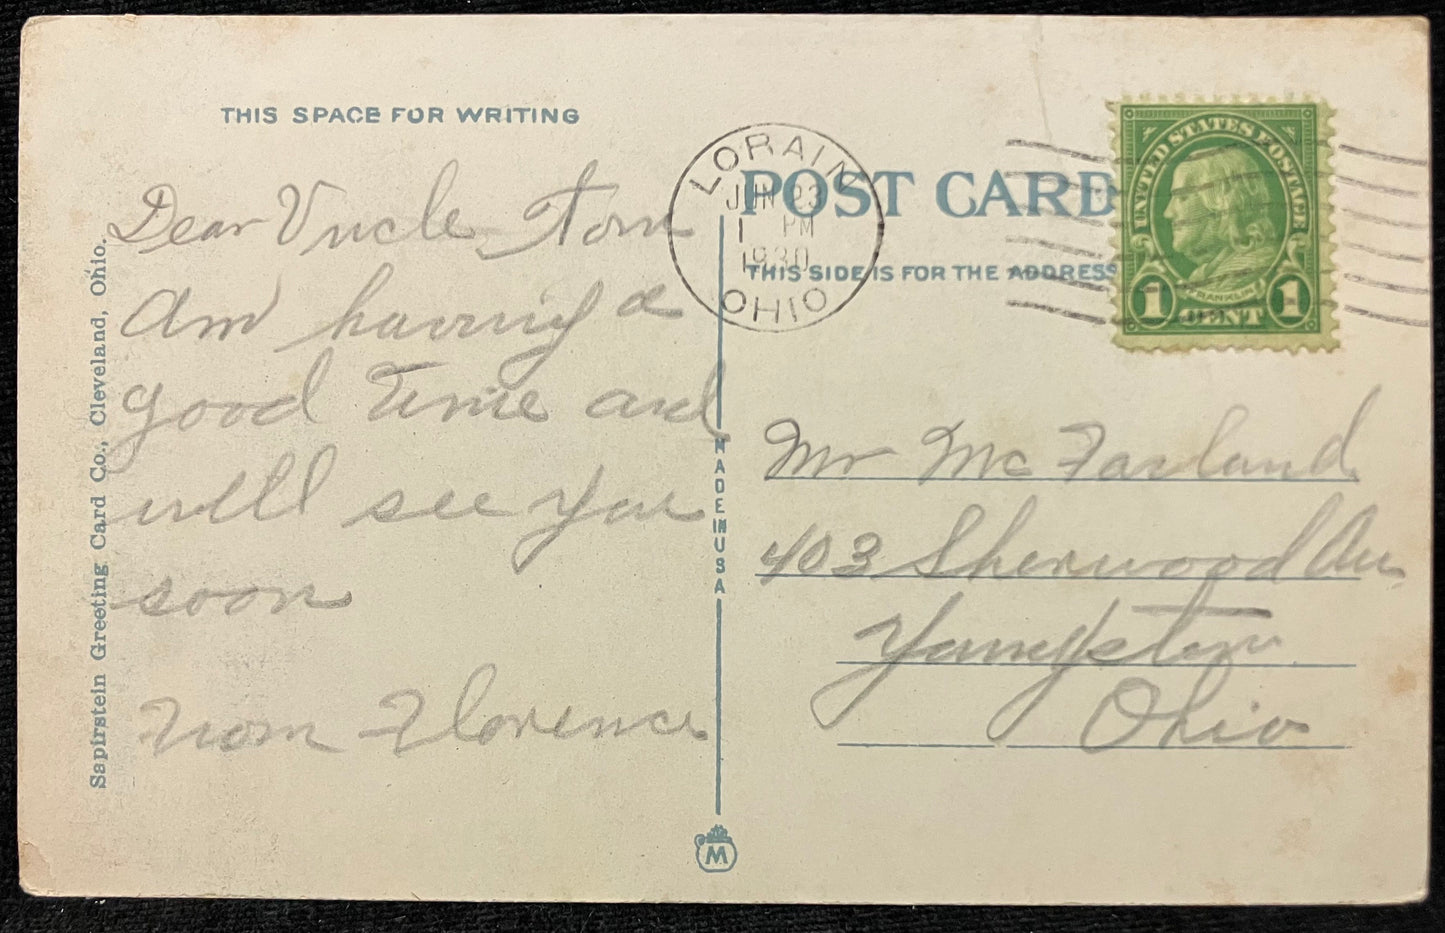 THIS SPACE FOR WRITING
Dear Uncle Tom
Am having a
good time and
will see you
soon
From Florence
Sapirstein Greeting Card Co., Cleveland, Ohio.
MADE IN USA
M
LORAIN
JUN 23
1 PM
1930
OHIO
POST CARD
THIS SIDE IS FOR THE ADDRESS
UNITED STATES POSTAGE
FRANKLIN
1 CENT 1
Mr McFarland
403 Sherwood Av
Youngstown
Ohio